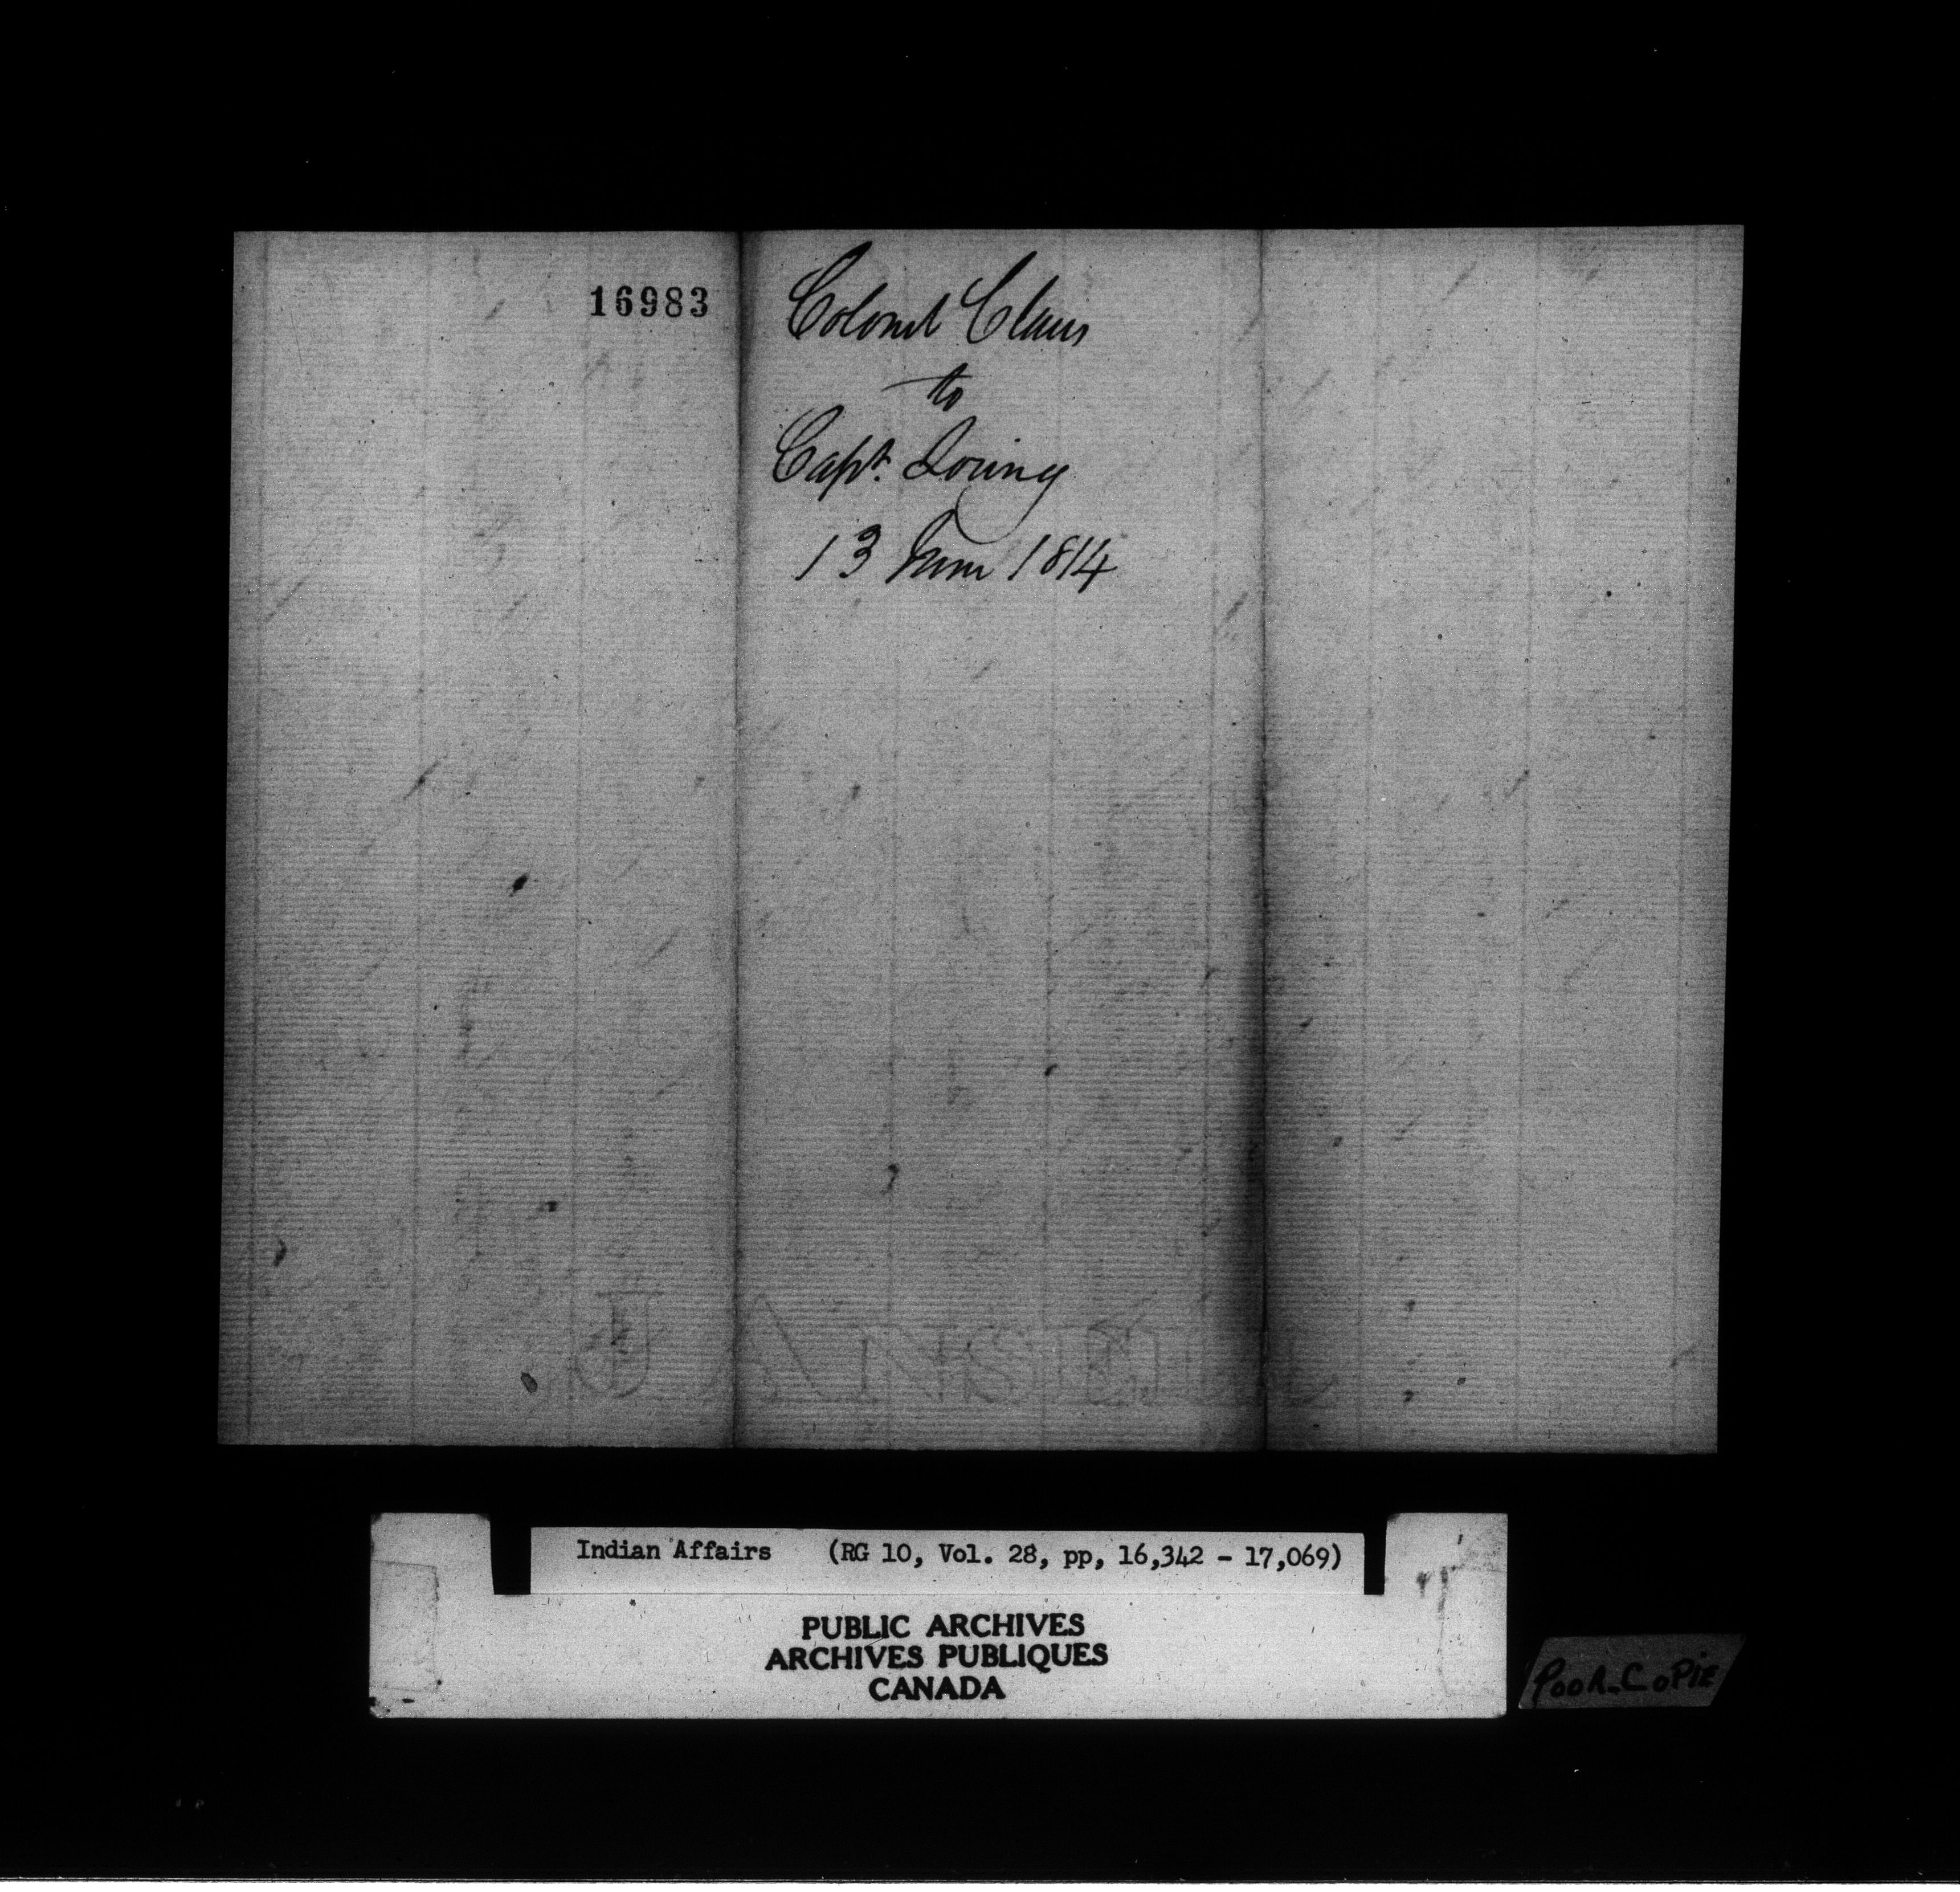 16983
Colonel Claus
to
Capt. Loring
13 June 1814
J ANSELL
Indian Affairs (RG 10, Vol. 28, pp, 16,342 - 17,069)
PUBLIC ARCHIVES
ARCHIVES PUBLIQUES
CANADA
POOR_COPIE